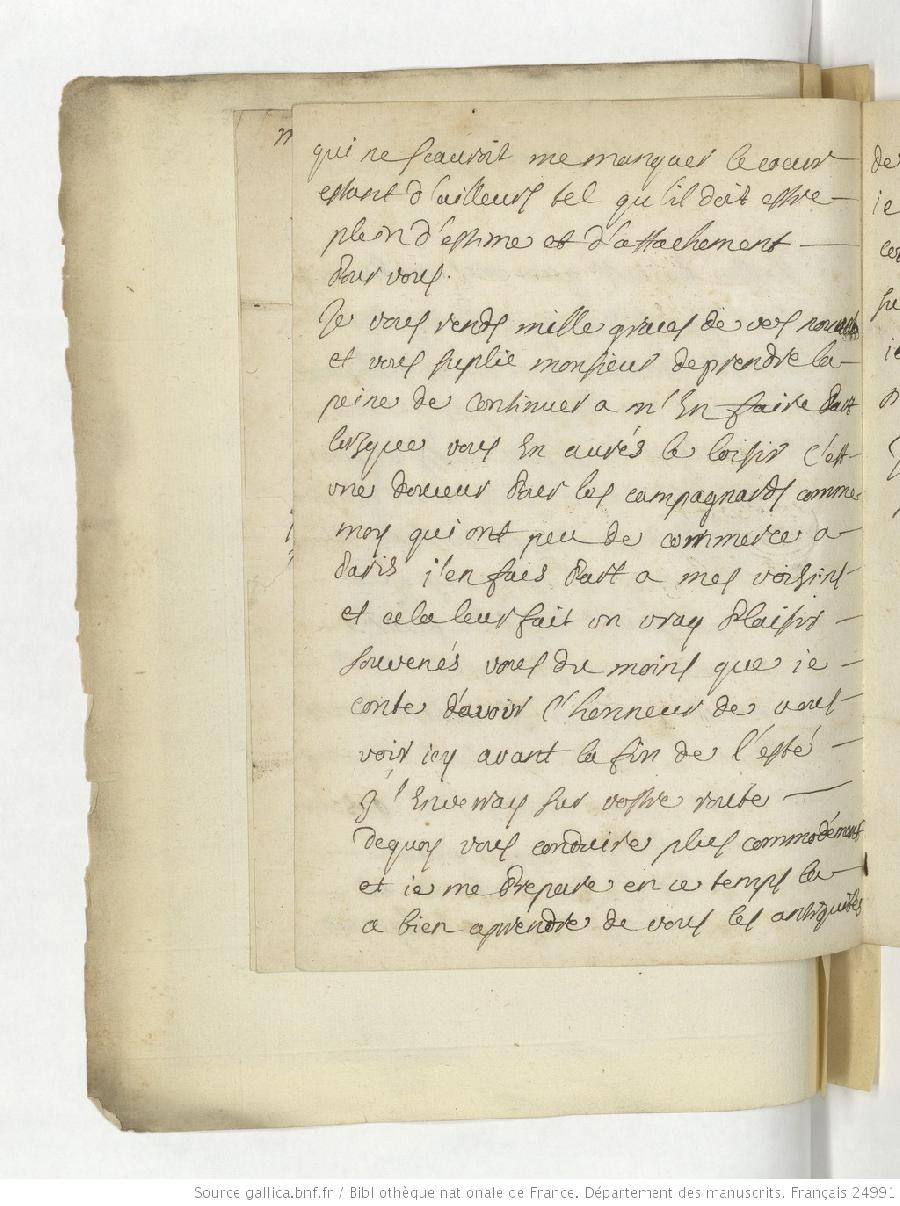 qui ne scauroit me manquer le coeur
estant d'ailleurs tel qu'il doit estre
plein d'estime et d'attachement
pour vous.
Je vous rends mille graces de vos nouvelles
et vous suplie monsieur de prendre la
peine de continuer a m'en faire part
lorsque vous en aurés le loisir c'est
une douceur pour les campagnards comme
moy qui ont peu de commerce a
Paris j'en fais part a mes voisins
et cela leur fait un vray plaisir
souvenés vous du moins que ie
conte d'avoir l'honneur de vous
voir icy avant la fin de l'esté
J'envoiray sur vostre route
dequoy vous conduire plus commodément
et ie me prepare en ce temps la
a bien aprendre de vous les antiquités
m
de
ie
ie
Source gallica.bnf.fr / Bibliothèque nationale de France. Département des manuscrits. Français 24991